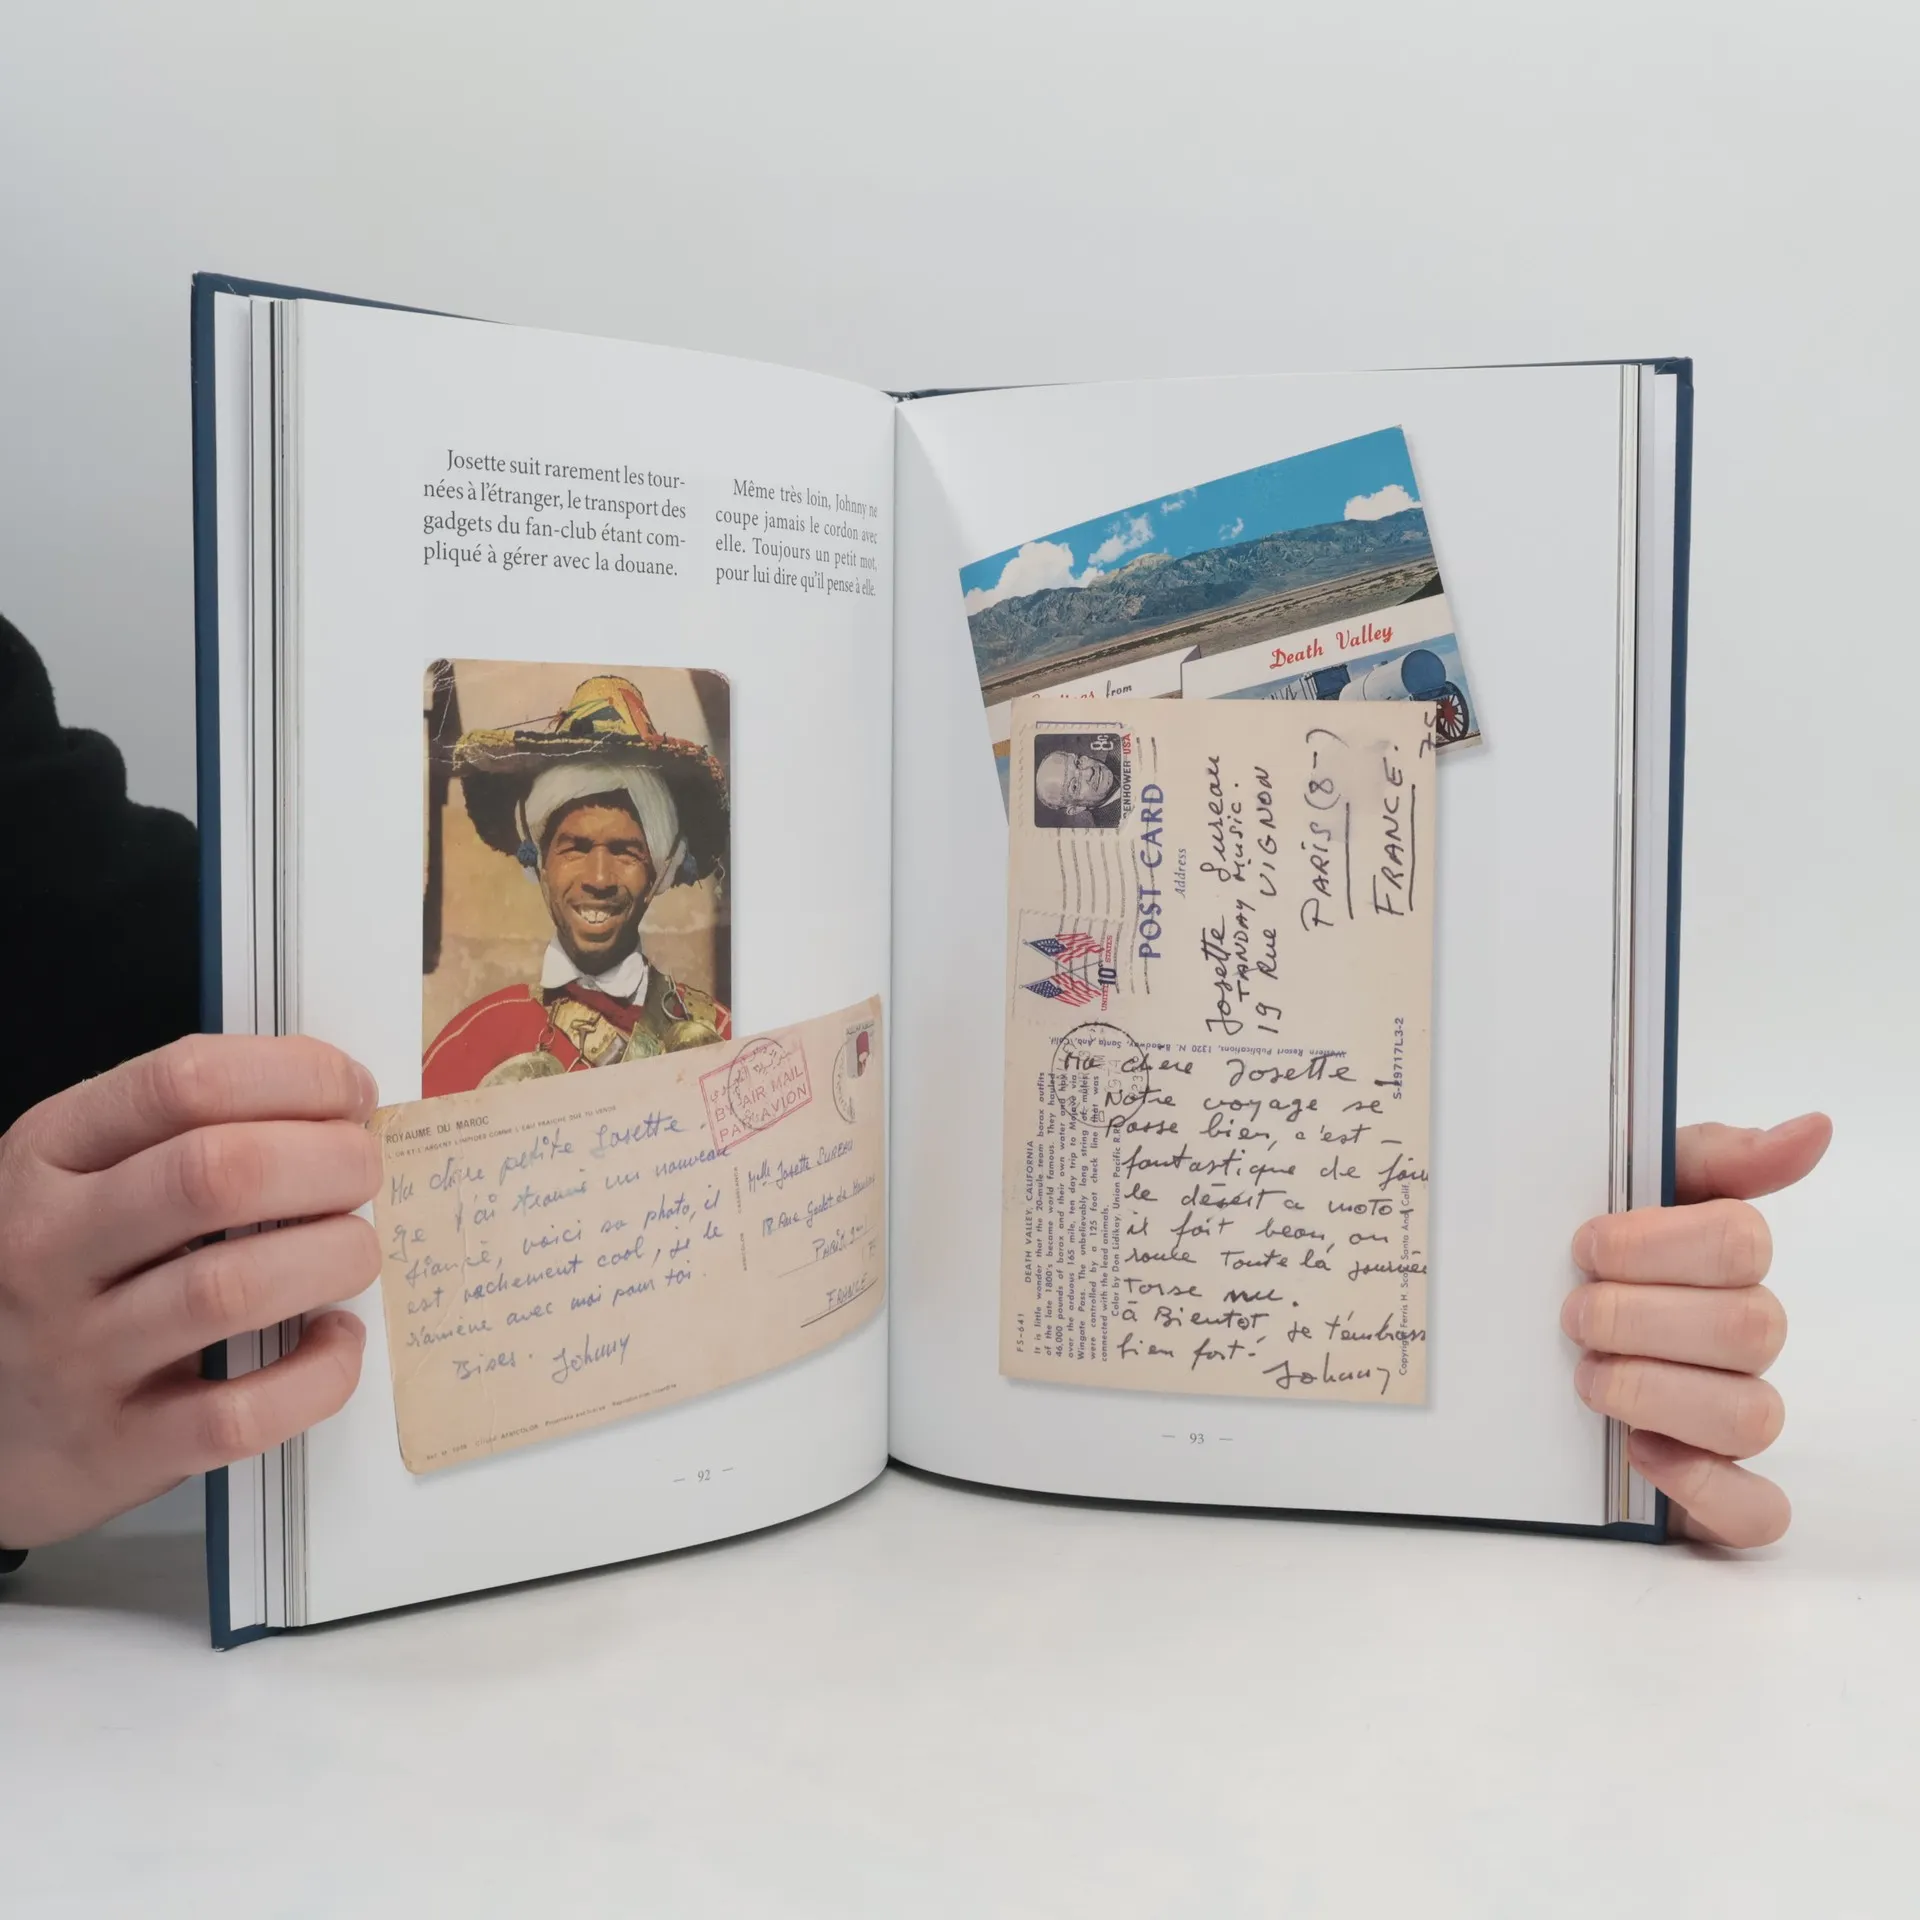 Josette suit rarement les tour-
nées à l'étranger, le transport des
gadgets du fan-club étant com-
pliqué à gérer avec la douane.
Même très loin, Johnny ne
coupe jamais le cordon avec
elle. Toujours un petit mot,
pour lui dire qu'il pense à elle.
ROYAUME DU MAROC
L'OR ET L'ARGENT LIMPIDES COMME L'EAU FRAICHE QUE TU VENDS
Ma chère petite Josette.
je t'ai trouvé un nouveau
fiancé, voici sa photo, il
est vachement cool, je le
ramène avec moi pour toi.
Bises. Johnny
BY AIR MAIL
PAR AVION
Mlle Josette SUREAU
18 Rue Godot de
PARIS
FRANCE
— 92 —
from
Death Valley
EISENHOWER·USA
8c
UNITED STATES
10c
POST CARD
Address
Josette Sureau
TANDAY Music.
19 Rue VIGNON
PARIS (8-)
FRANCE.
75
Western Resort Publications, 1320 N. Broadway, Santa Ana, Calif.
S-29717L3-2
FS-641
DEATH VALLEY, CALIFORNIA
It is little wonder that the 20-mule team borax outfits
of the late 1800's became world famous. They hauled
46,000 pounds of borax and their own water and hay
over the arduous 165 mile, ten day trip to Mojave via
Wingate Pass. The unbelievably long string of mules
were controlled by a 125 foot check line that was
connected with the lead animals.
Color by Don Lidikay, Union Pacific R.R.
Ma chere Josette!
Notre voyage se
Passe bien, c'est -
fantastique de fair
le désert a moto.
il fait beau, on
roule Toute la journée
Torse nu.
à Bientot je t'embrass
bien fort!
Johnny
— 93 —